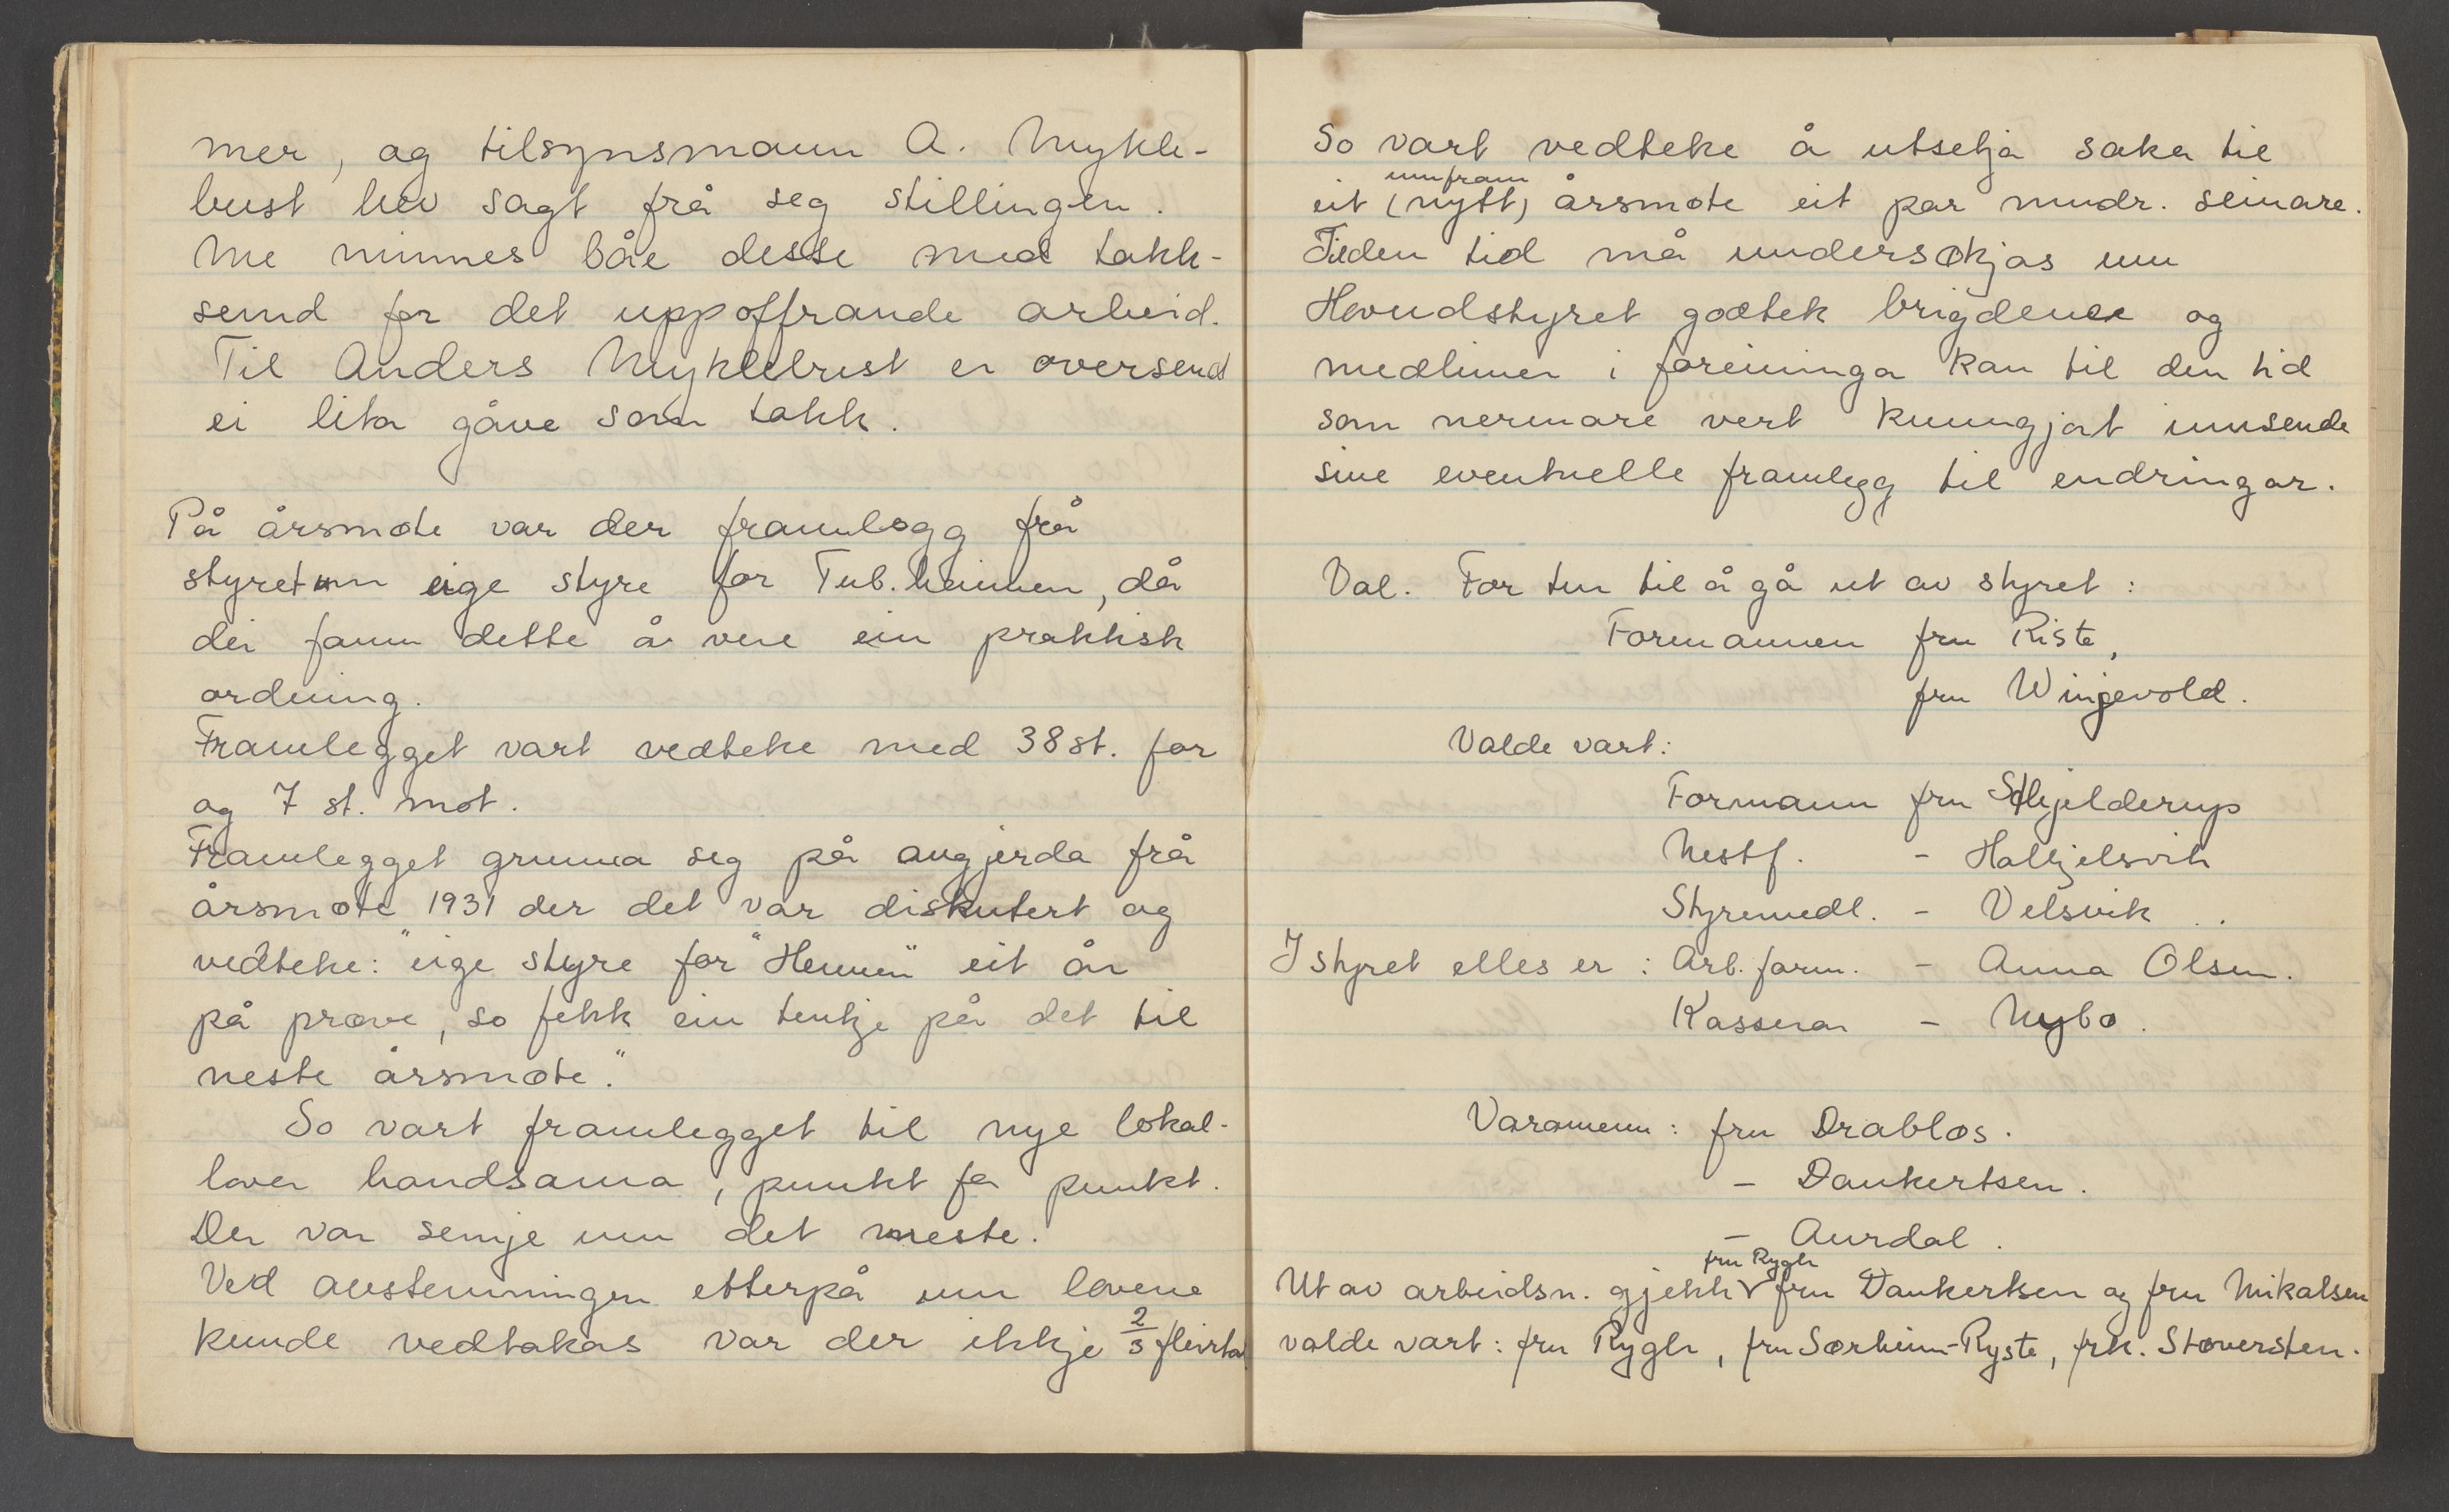 mer, og tilsynsmann A. Mykle-
bust hev sagt frå seg stillingen.
Me minnes båe desse med takk-
semd for det uppoffrande arbeid.
Til Anders Myklebust er oversend
ei lita gåve som takk.
På årsmøte var der framlegg frå
styret um eige styre for Tub.heimen, då
dei fann dette å vere ein praktisk
ordning.
Framlegget vart vedteke med 38 st. for
og 7 st. mot.
Framlegget grunna seg på avgjerda frå
årsmøte 1931 der det var diskutert og
vedteke: "eige styre for "Heimen" eit år
på prøve, so fekk ein tenkje på det til
neste årsmøte."
So vart framlegget til nye lokal-
lover handsama, punkt for punkt.
Der var semje um det meste.
Ved avstemningen etterpå um lovene
kunde vedtakas var der ikkje 2/3 fleirtal
So vart vedteke å utsetja saka til
umfram
eit (nytt) årsmøte eit par mndr. seinare.
Til den tid må undersøkjas um
Hovudstyret godtek brigdene og
medlimer i foreininga kan til den tid
som nermare vert kunngjort innsende
sine eventuelle framlegg til endringar.
Val. For tur til å gå ut av styret:
Formannen fru Riste,
fru Wingevold.
Valde vart:
Formann fru Schjelderup
Nestf. - Halkjelsvik
Styremedl. - Velsvik
I styret elles er: Arb. form. - Anna Olsen.
Kasserar - Nybø.
Varamenn: fru Drabløs.
- Dankertsen.
- Aurdal.
fru Rygh
Ut av arbeidsn. gjekk V fru Dankertsen og fru Mikalsen
valde vart: fru Rygh, fru Sørheim-Ryste, frk. Støversten.